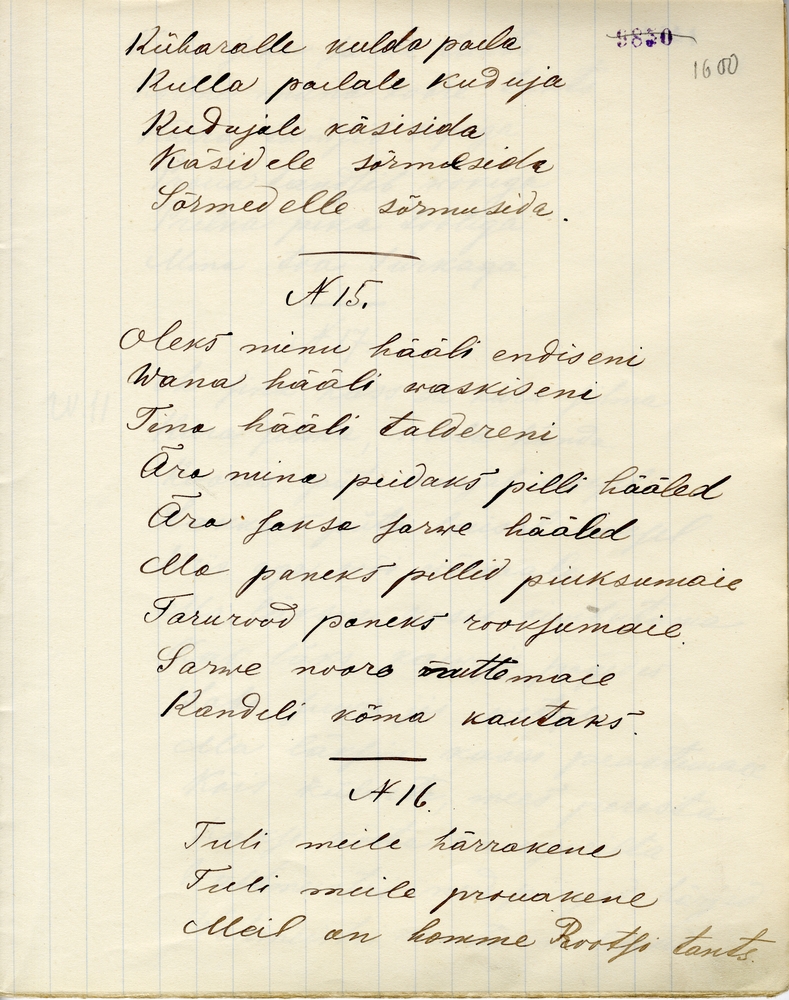 Kübaralle kulda paela
9850
1600
Kulla paelale kuduja
Kudujale käsisida
Käsidele sõrmesida
Sõrmedelle sõrmusida.
N 15.
Oleks minu hääli endiseni
Wana hääli waskiseni
Tina hääli taldereni
Ära mina peidaks pilli hääled
Ära saksa sarwe hääled
Ma paneks pillid piuksumaie
Torurood paneks rooksumaie.
Sarwe noore nuttemaie
Kandeli kõma kautaks.
N 16.
Tuli meile härrakene
Tuli meile prouakene
Meil on homme Rootsi tants.